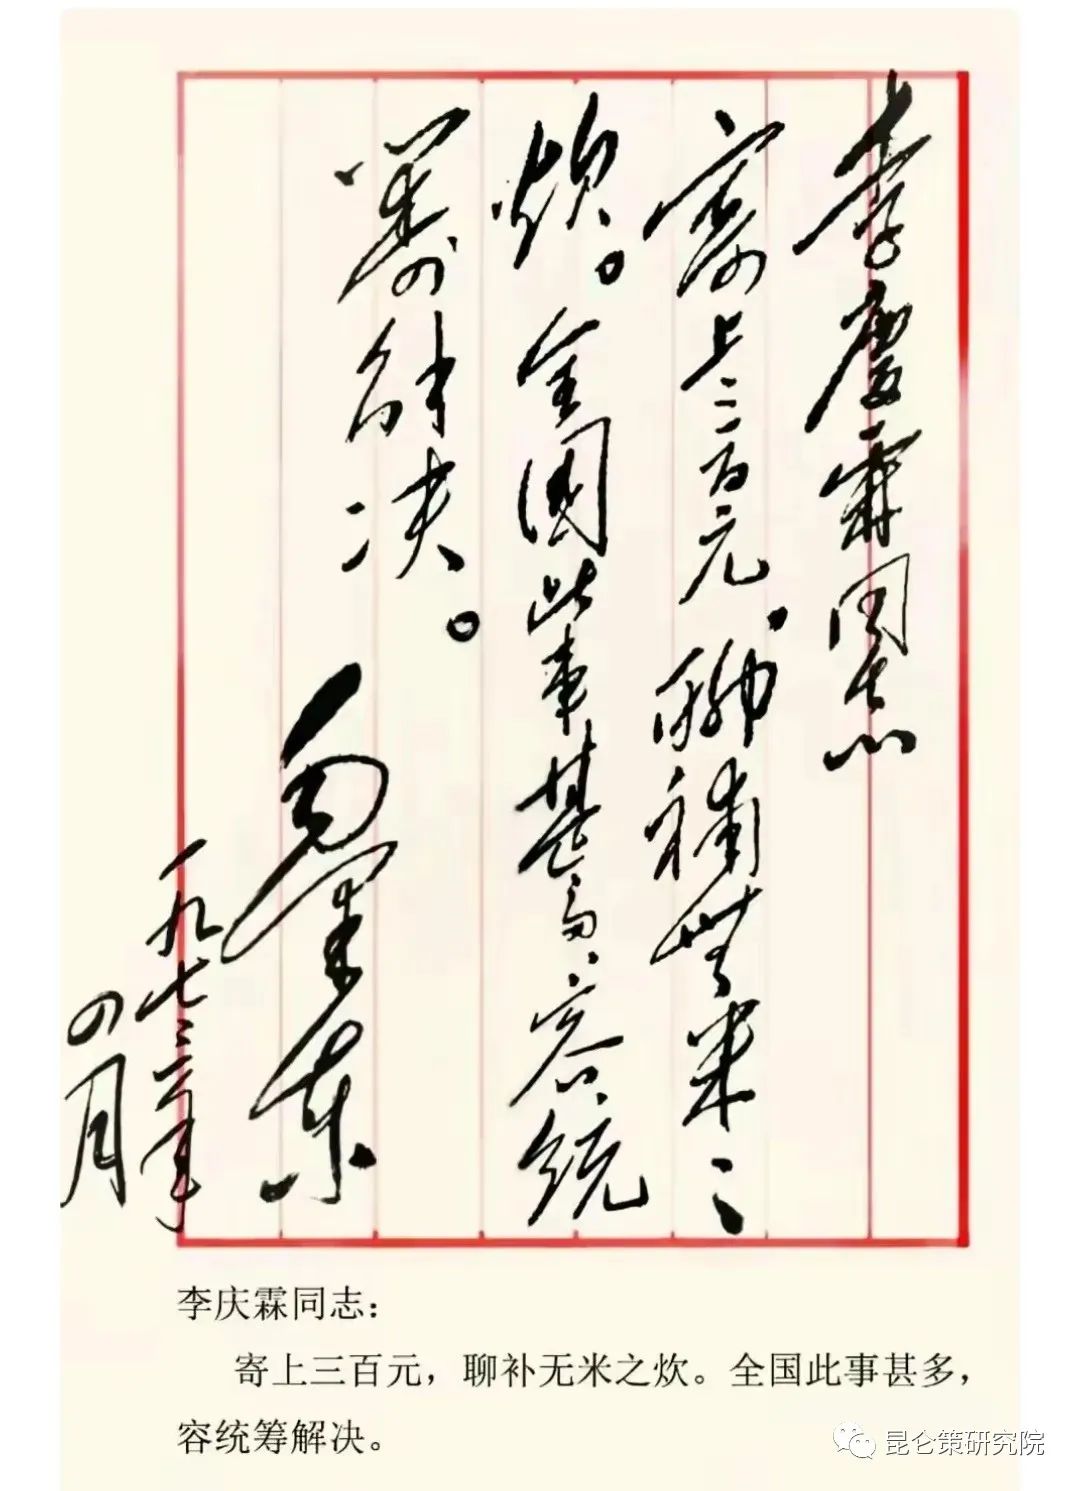 李慶霖同志
寄上三百元、聊補無米之
炊。全国此事甚多、容统
筹解决。
毛泽东
一九七三年
四月
李庆霖同志：
寄上三百元，聊补无米之炊。全国此事甚多，
容统筹解决。
昆仑策研究院